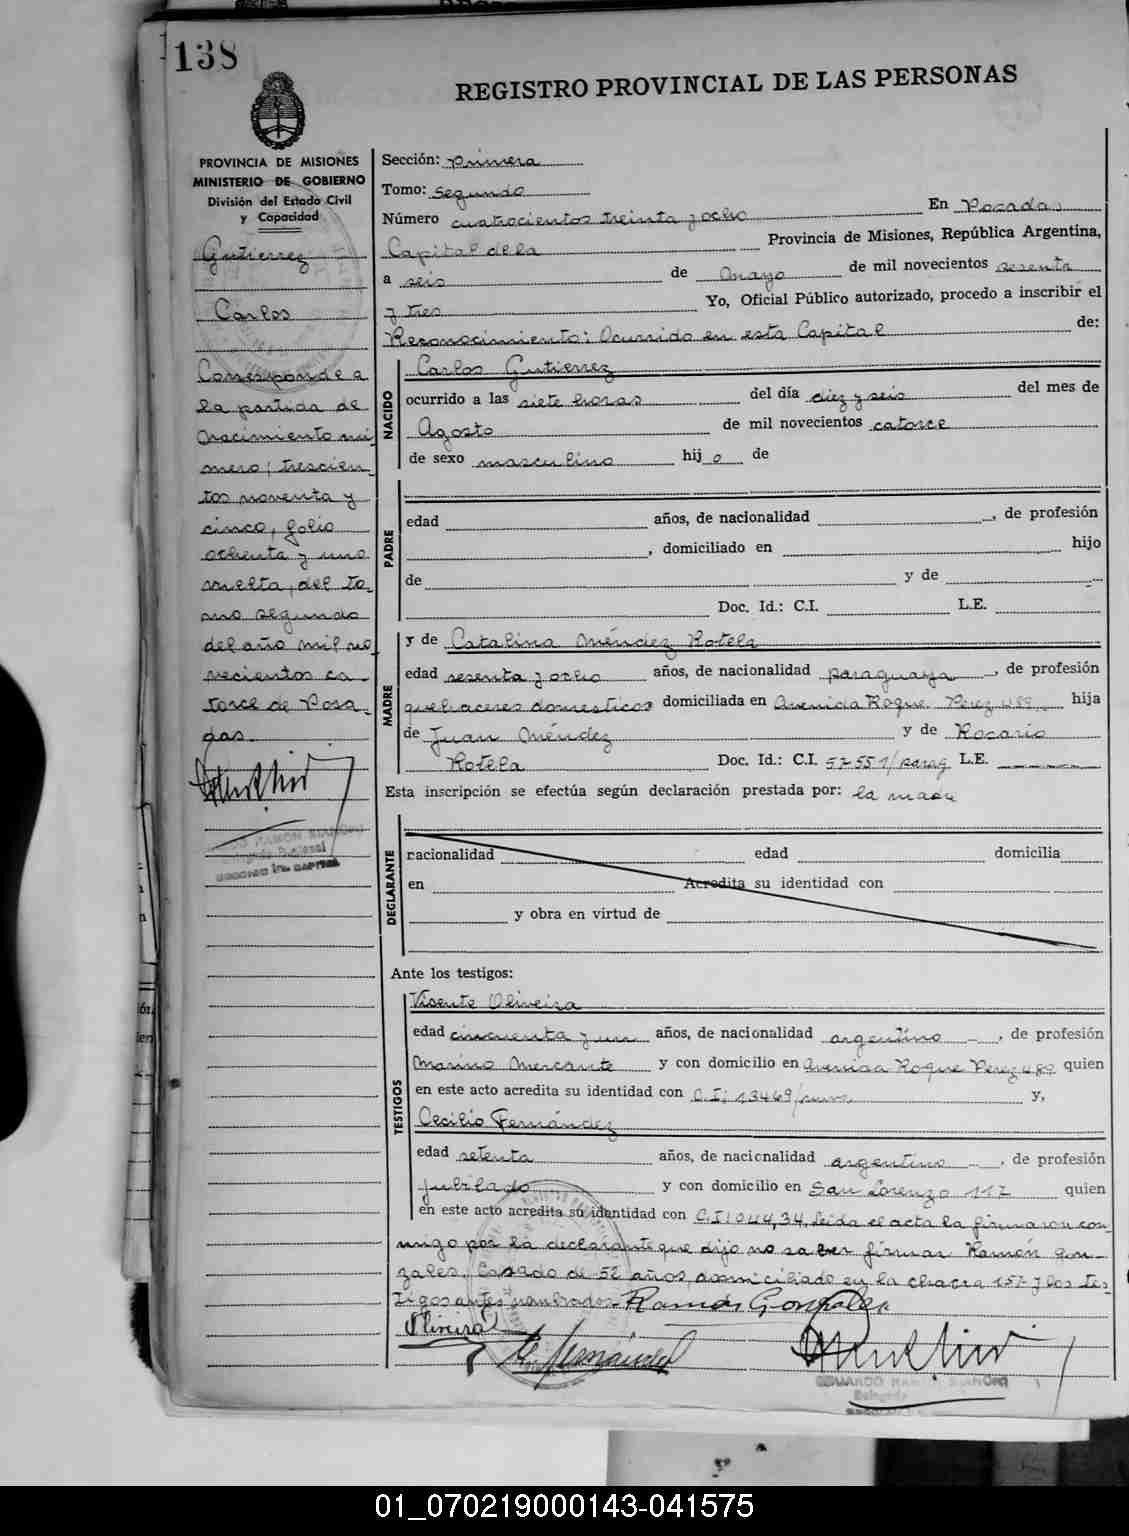 138
REGISTRO PROVINCIAL DE LAS PERSONAS
PROVINCIA DE MISIONES
MINISTERIO DE GOBIERNO
División del Estado Civil
y Capacidad
Gutierrez
Carlos
Corresponde a
la partida de
nacimiento nú
mero, trescien-
tos noventa y
cinco, folio
ochenta y uno
vuelta, del to-
mo segundo
del año mil no
vecientos ca-
torce de Posa-
das.
Sección: primera
Tomo: segundo
Número cuatrocientos treinta y ocho En Posadas
Capital de la Provincia de Misiones, República Argentina,
a seis de mayo de mil novecientos sesenta
y tres Yo, Oficial Público autorizado, procedo a inscribir el
Reconocimiento: Ocurrido en esta Capital de:
NACIDO
Carlos Gutierrez
ocurrido a las siete horas del día diez y seis del mes de
Agosto de mil novecientos catorce
de sexo masculino hijo de
PADRE
edad años, de nacionalidad , de profesión
, domiciliado en hijo
de y de
Doc. Id.: C.I. L.E.
MADRE
y de Catalina Méndez Rotela
edad sesenta y ocho años, de nacionalidad paraguaya, de profesión
quehaceres domesticos domiciliada en Avenida Roque Perez 489 hija
de Juan Méndez y de Rosario
Rotela Doc. Id.: C.I. 57551/parag L.E.
Esta inscripción se efectúa según declaración prestada por: la madre
DECLARANTE
nacionalidad edad domicilia
en Acredita su identidad con
y obra en virtud de
Ante los testigos:
TESTIGOS
Visente Oliveira
edad cincuenta y un años, de nacionalidad argentino, de profesión
Marino Mercante y con domicilio en Avenida Roque Perez 489 quien
en este acto acredita su identidad con C.I: 13469/ y,
Cecilio Fernández
edad setenta años, de nacionalidad argentino, de profesión
jubilado y con domicilio en San Lorenzo 117 quien
en este acto acredita su identidad con C.I: 044,34, leida el acta la firmaron con
migo por la declarante que dijo no saber firmar Ramón Gon-
zales, Casado de 52 años, domiciliado en la chacra 157 y los tes-
tigos antes nombrados. Ramón Gonzales
Oliveira
C. Fernández
01_070219000143-041575